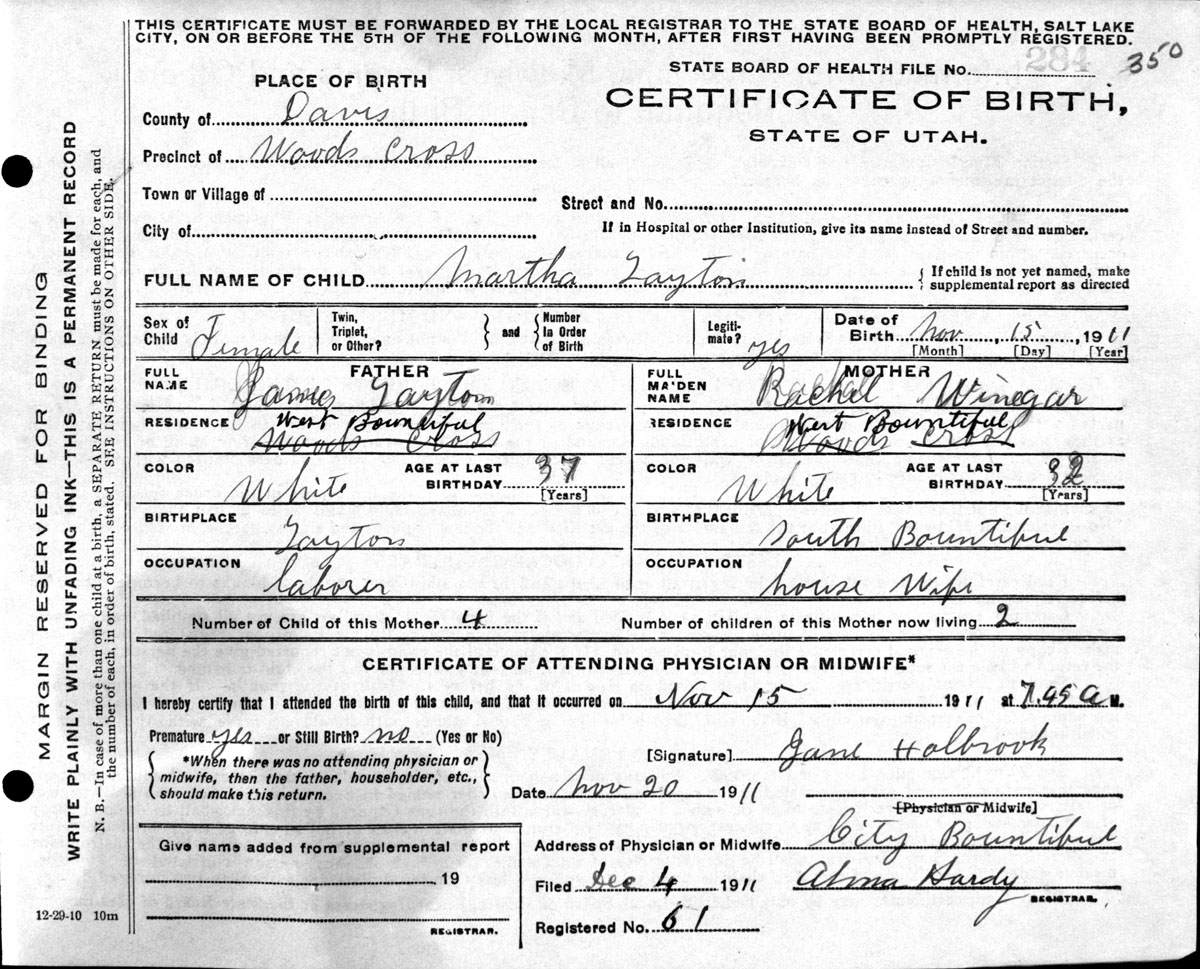 THIS CERTIFICATE MUST BE FORWARDED BY THE LOCAL REGISTRAR TO THE STATE BOARD OF HEALTH, SALT LAKE
CITY, ON OR BEFORE THE 5TH OF THE FOLLOWING MONTH, AFTER FIRST HAVING BEEN PROMPTLY REGISTERED.
STATE BOARD OF HEALTH FILE No. 284 350
PLACE OF BIRTH
CERTIFICATE OF BIRTH,
STATE OF UTAH.
County of Davis
Precinct of Woods Cross
Town or Village of
Street and No.
City of
If in Hospital or other Institution, give its name instead of Street and number.
FULL NAME OF CHILD Martha Layton
{ If child is not yet named, make
supplemental report as directed
Sex of
Child Female
Twin,
Triplet,
or Other?
} and {
Number
in Order
of Birth
Legiti-
mate? yes
Date of
Birth Nov, 15, 1911
[Month] [Day] [Year]
FATHER
FULL
NAME James Layton
RESIDENCE West Bountiful
Woods Cross
COLOR White
AGE AT LAST
BIRTHDAY 37
[Years]
BIRTHPLACE Layton
OCCUPATION laborer
MOTHER
FULL
MAIDEN
NAME Rachell Winegar
RESIDENCE West Bountiful
Woods Cross
COLOR White
AGE AT LAST
BIRTHDAY 32
[Years]
BIRTHPLACE South Bountiful
OCCUPATION house Wife
Number of Child of this Mother 4 Number of children of this Mother now living 2
CERTIFICATE OF ATTENDING PHYSICIAN OR MIDWIFE*
I hereby certify that I attended the birth of this child, and that it occurred on Nov 15 1911 at 7.45 a M.
Premature yes or Still Birth? no (Yes or No)
{ *When there was no attending physician or
midwife, then the father, householder, etc.,
should make this return. }
[Signature] Jane Holbrook
Date Nov 20 1911
[Physician or Midwife]
Address of Physician or Midwife City Bountiful
Give name added from supplemental report
19
REGISTRAR.
Filed Dec 4 1911 Alma Hardy
REGISTRAR.
Registered No. 61
12-29-10 10m
MARGIN RESERVED FOR BINDING
WRITE PLAINLY WITH UNFADING INK—THIS IS A PERMANENT RECORD
N. B.—In case of more than one child at a birth, a SEPARATE RETURN must be made for each, and
the number of each, in order of birth, stated. SEE INSTRUCTIONS ON OTHER SIDE.